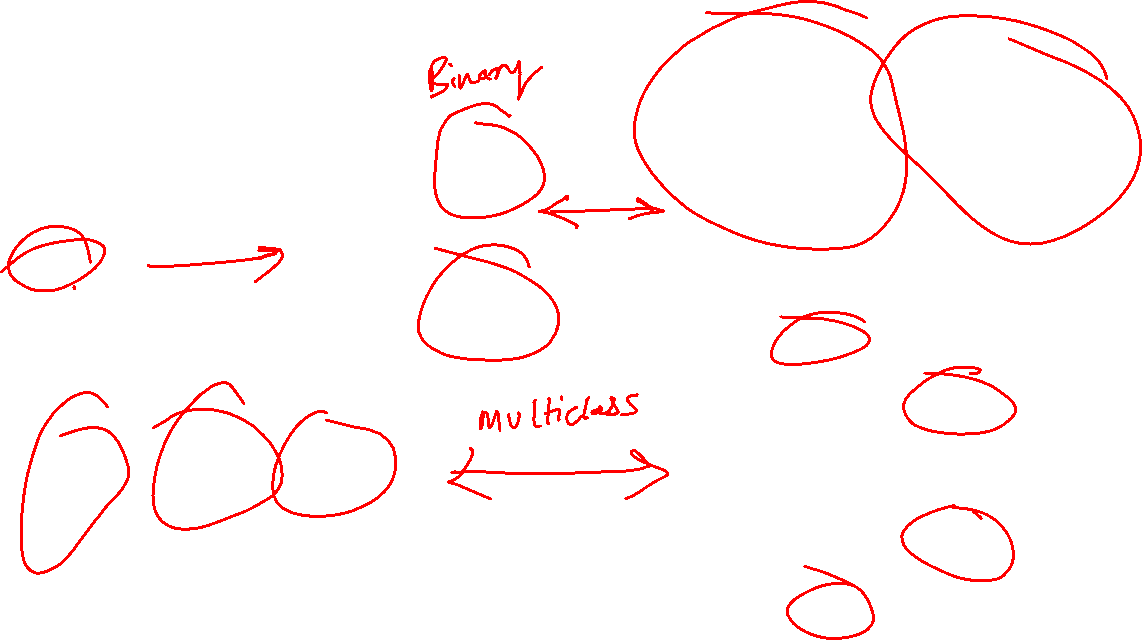 Binary
Multiclass